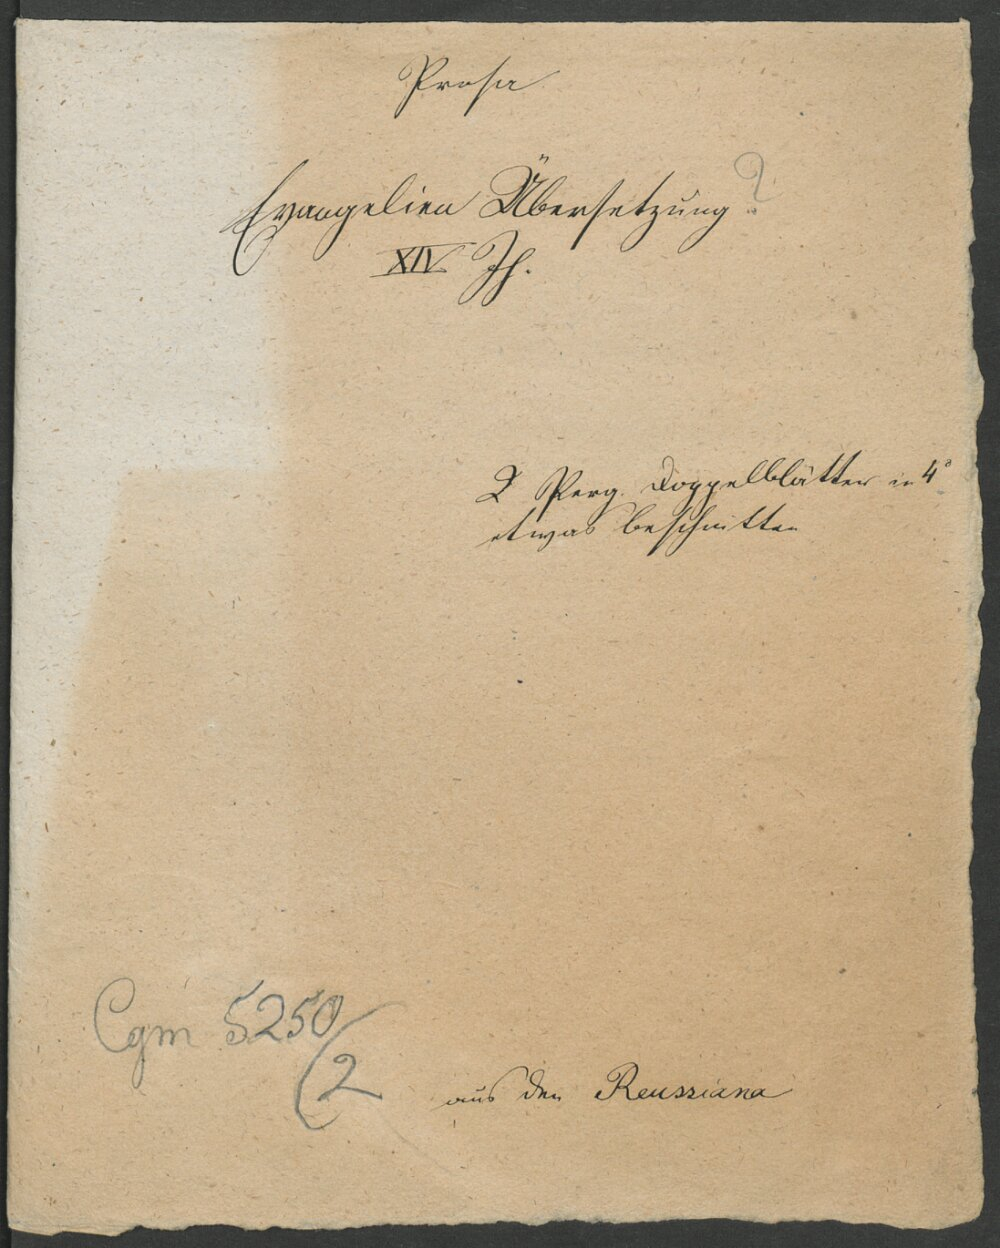 Prosa
Evangelien Übersetzung ?
XIV Jh.
2 Perg. Doppelblätter in 4°
etwas beschnitten
Cgm 5250/2
aus den Reussiana